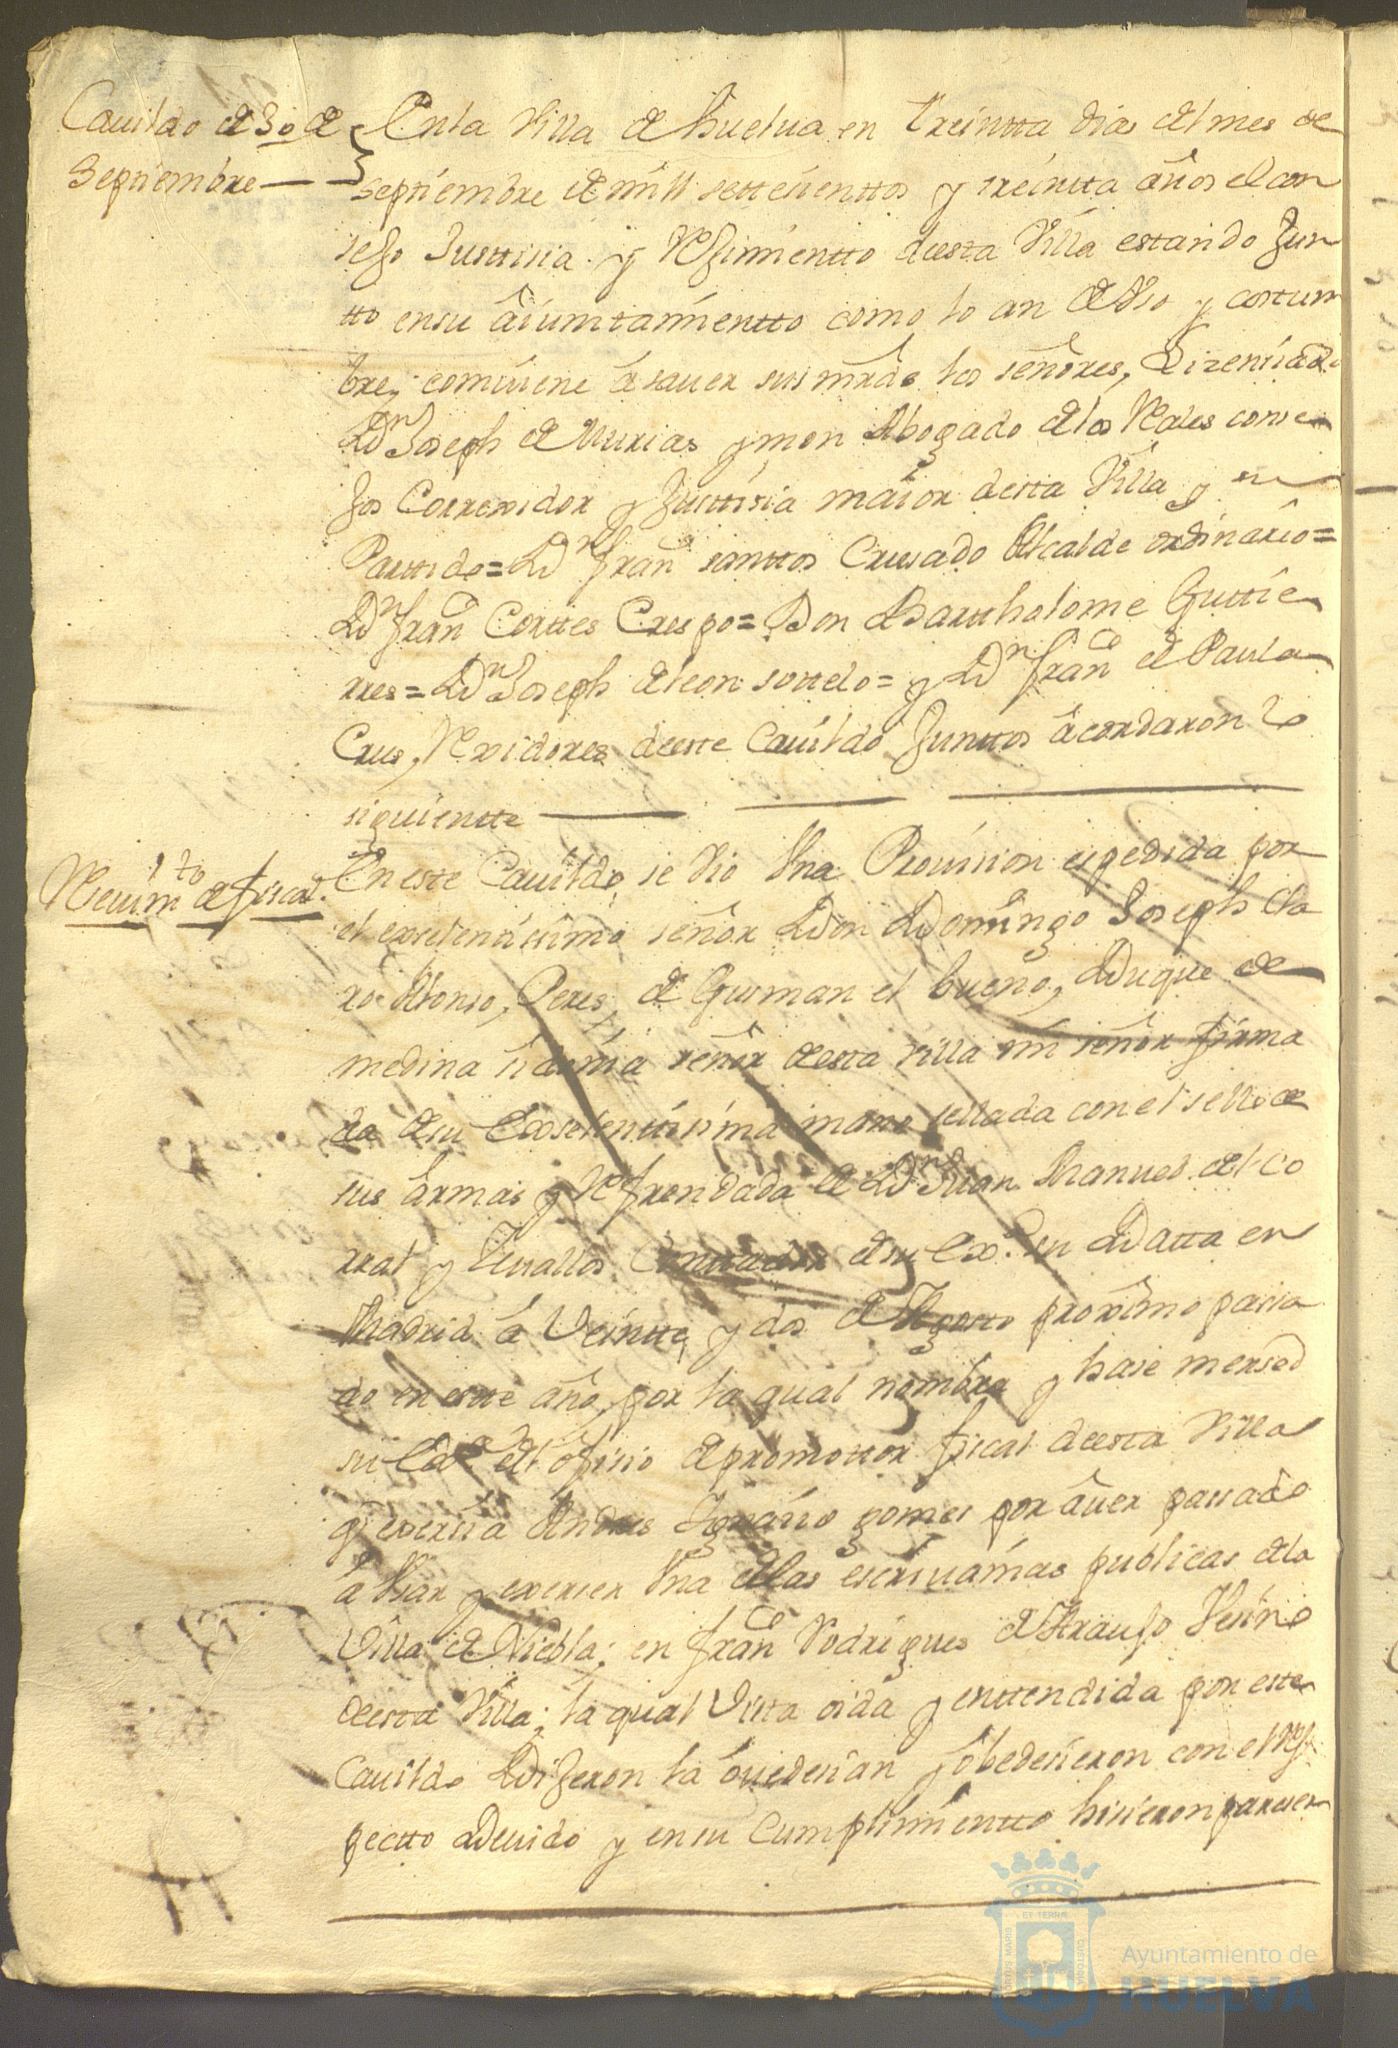 Cauildo de 30 de
Septiembre
En la Villa de Huelua en treintta dias del mes de
septiembre de mill settesienttos y treintta años el con
sejo Justtisia y Reximientto de esta Villa estando Jun
tto en su aiuntamientto como lo an de Uso y costum
bre, combiene a sauer sus mrds. los señores, Lizenciado
Dn Joseph de Murias ymon Abogado de los Reales conse
jos Correxidor y Justtisia maior desta Villa y su
Parttido = Dn Fran santtos Crusado Alcalde ordinario =
Dn Fran Corttes Crespo = Don Barttholome Guttie
rres = Dn Joseph de leon sottelo = y Dn Franco de Paula
Crus, Rexidores de este Cauildo Junttos acordaron lo
siguientte
Reciuimto de fiscal.
En este Cauildo, se Vio Una Prouision espedida por
el exselentissimo señor Don Domingo Joseph Cla
ros Alfonso, Peres, de Gusman el bueno, Duque de
medina sidonia señor de esta Villa mi señor firma
da de su Exselentissima mano sellada con el sello de
sus armas y Refrendada de Dn Juan Manuel del Co
rral y Seuallos Conttador de su Exa. su Datta en
Madrid a Veintte y dos de Agosto proximo passa
do en este año, por la qual nombra y hase mersed
su Exa del ofisio de promottor fiscal de esta Villa
q exersia Andres Ygnasio gomes por auer passado
a Usar y exerser Una de las escriuanias publicas de la
Villa de Niebla; en Franco Rodrigues de Araujo Vesino
de esta Villa; la qual Vista oida y enttendida por este
Cauildo Dixeron la ouedesian y obedesieron con el Res
pectto Deuido y en su Cumplimientto hisieron pareser
Ayuntamiento de
HUELVA